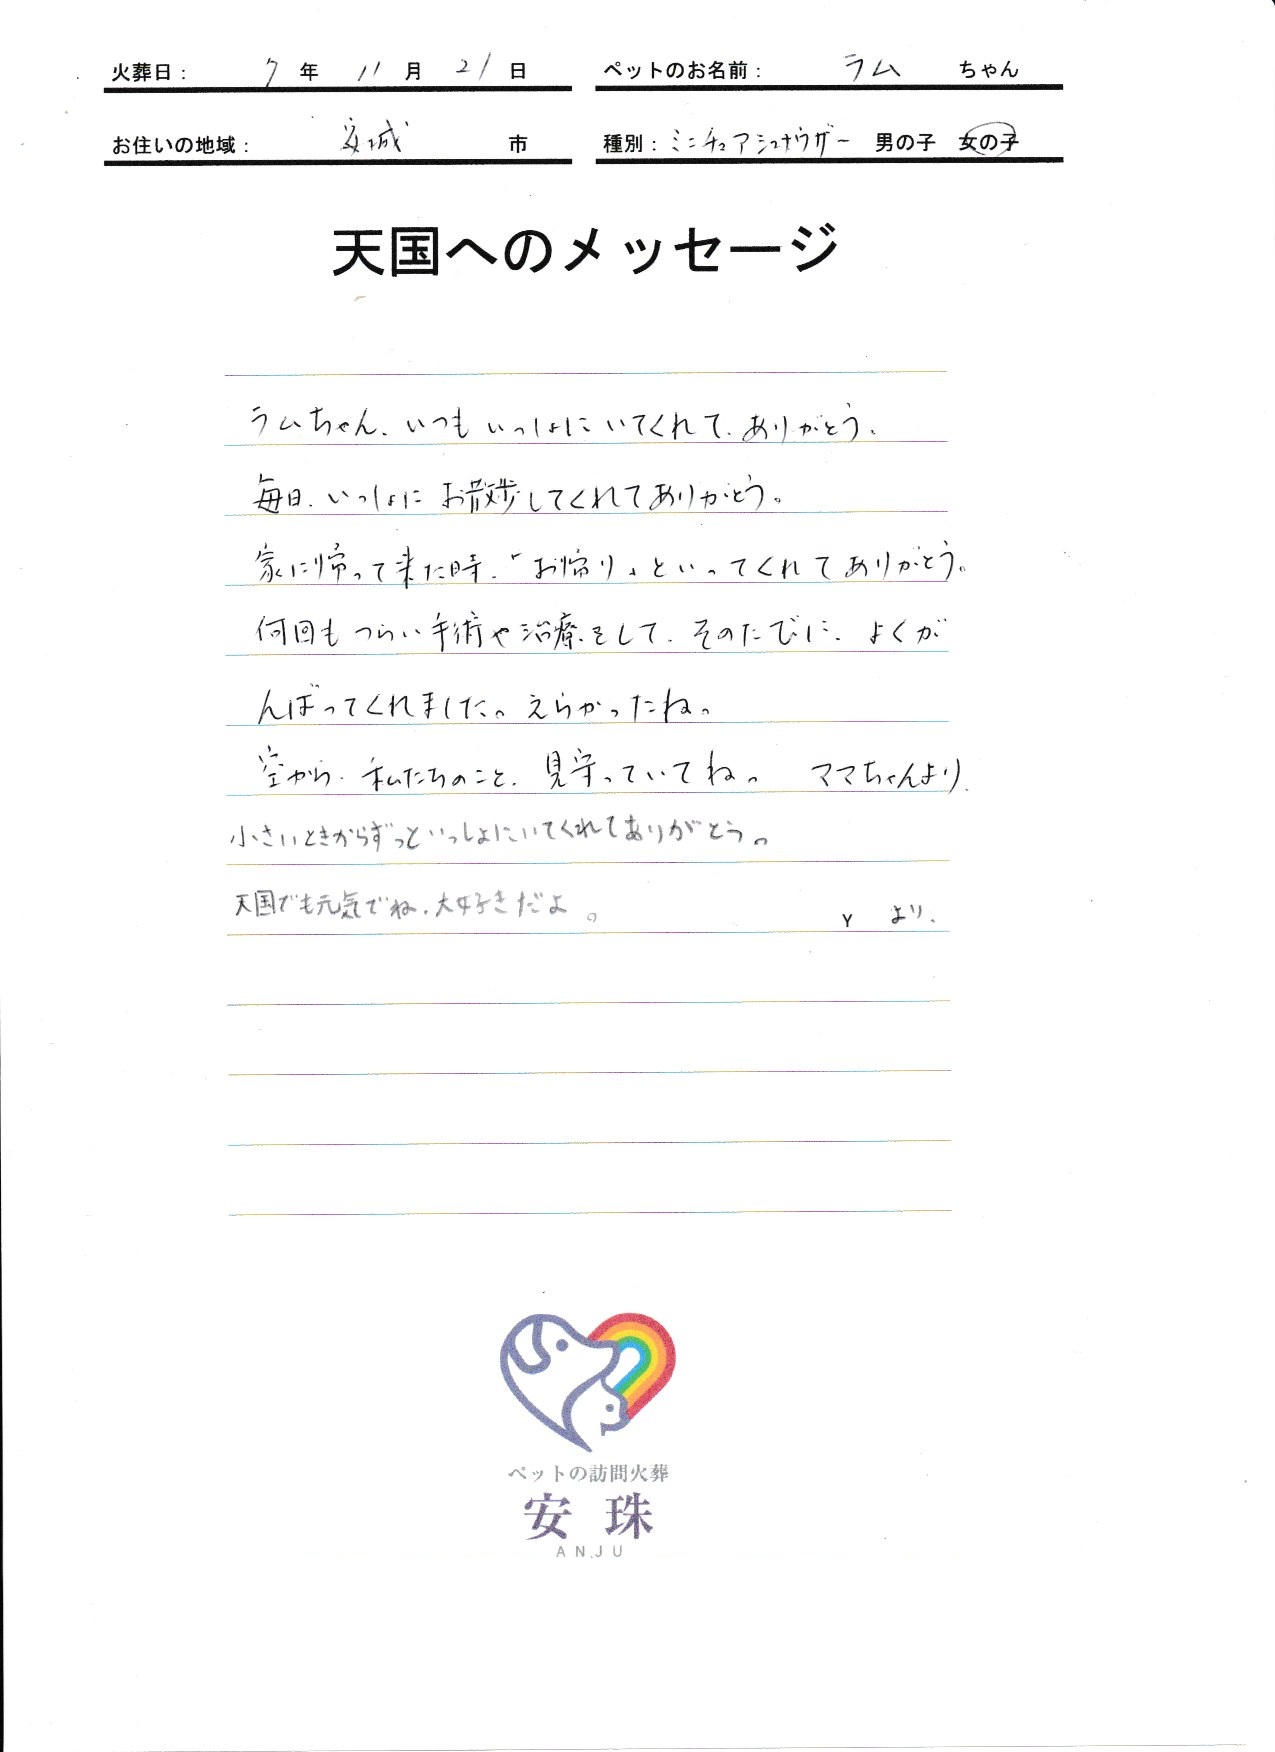 火葬日： 7 年 11 月 21 日 ペットのお名前： ラム ちゃん
お住いの地域： 安城 市 種別：ミニチュアシュナウザー 男の子 女の子
天国へのメッセージ
ラムちゃん、いつもいっしょにいてくれて、ありがとう、
毎日、いっしょにお散歩してくれてありがとう。
家に帰って来た時、「お帰り」といってくれてありがとう。
何回もつらい手術や治療をして、そのたびに、よくが
んばってくれました。えらかったね。
空から、私たちのこと、見守っていてね。 ママちゃんより、
小さいときからずっといっしょにいてくれてありがとう。
天国でも元気でね、大好きだよ。 Y より、
ペットの訪問火葬
安珠
ANJU